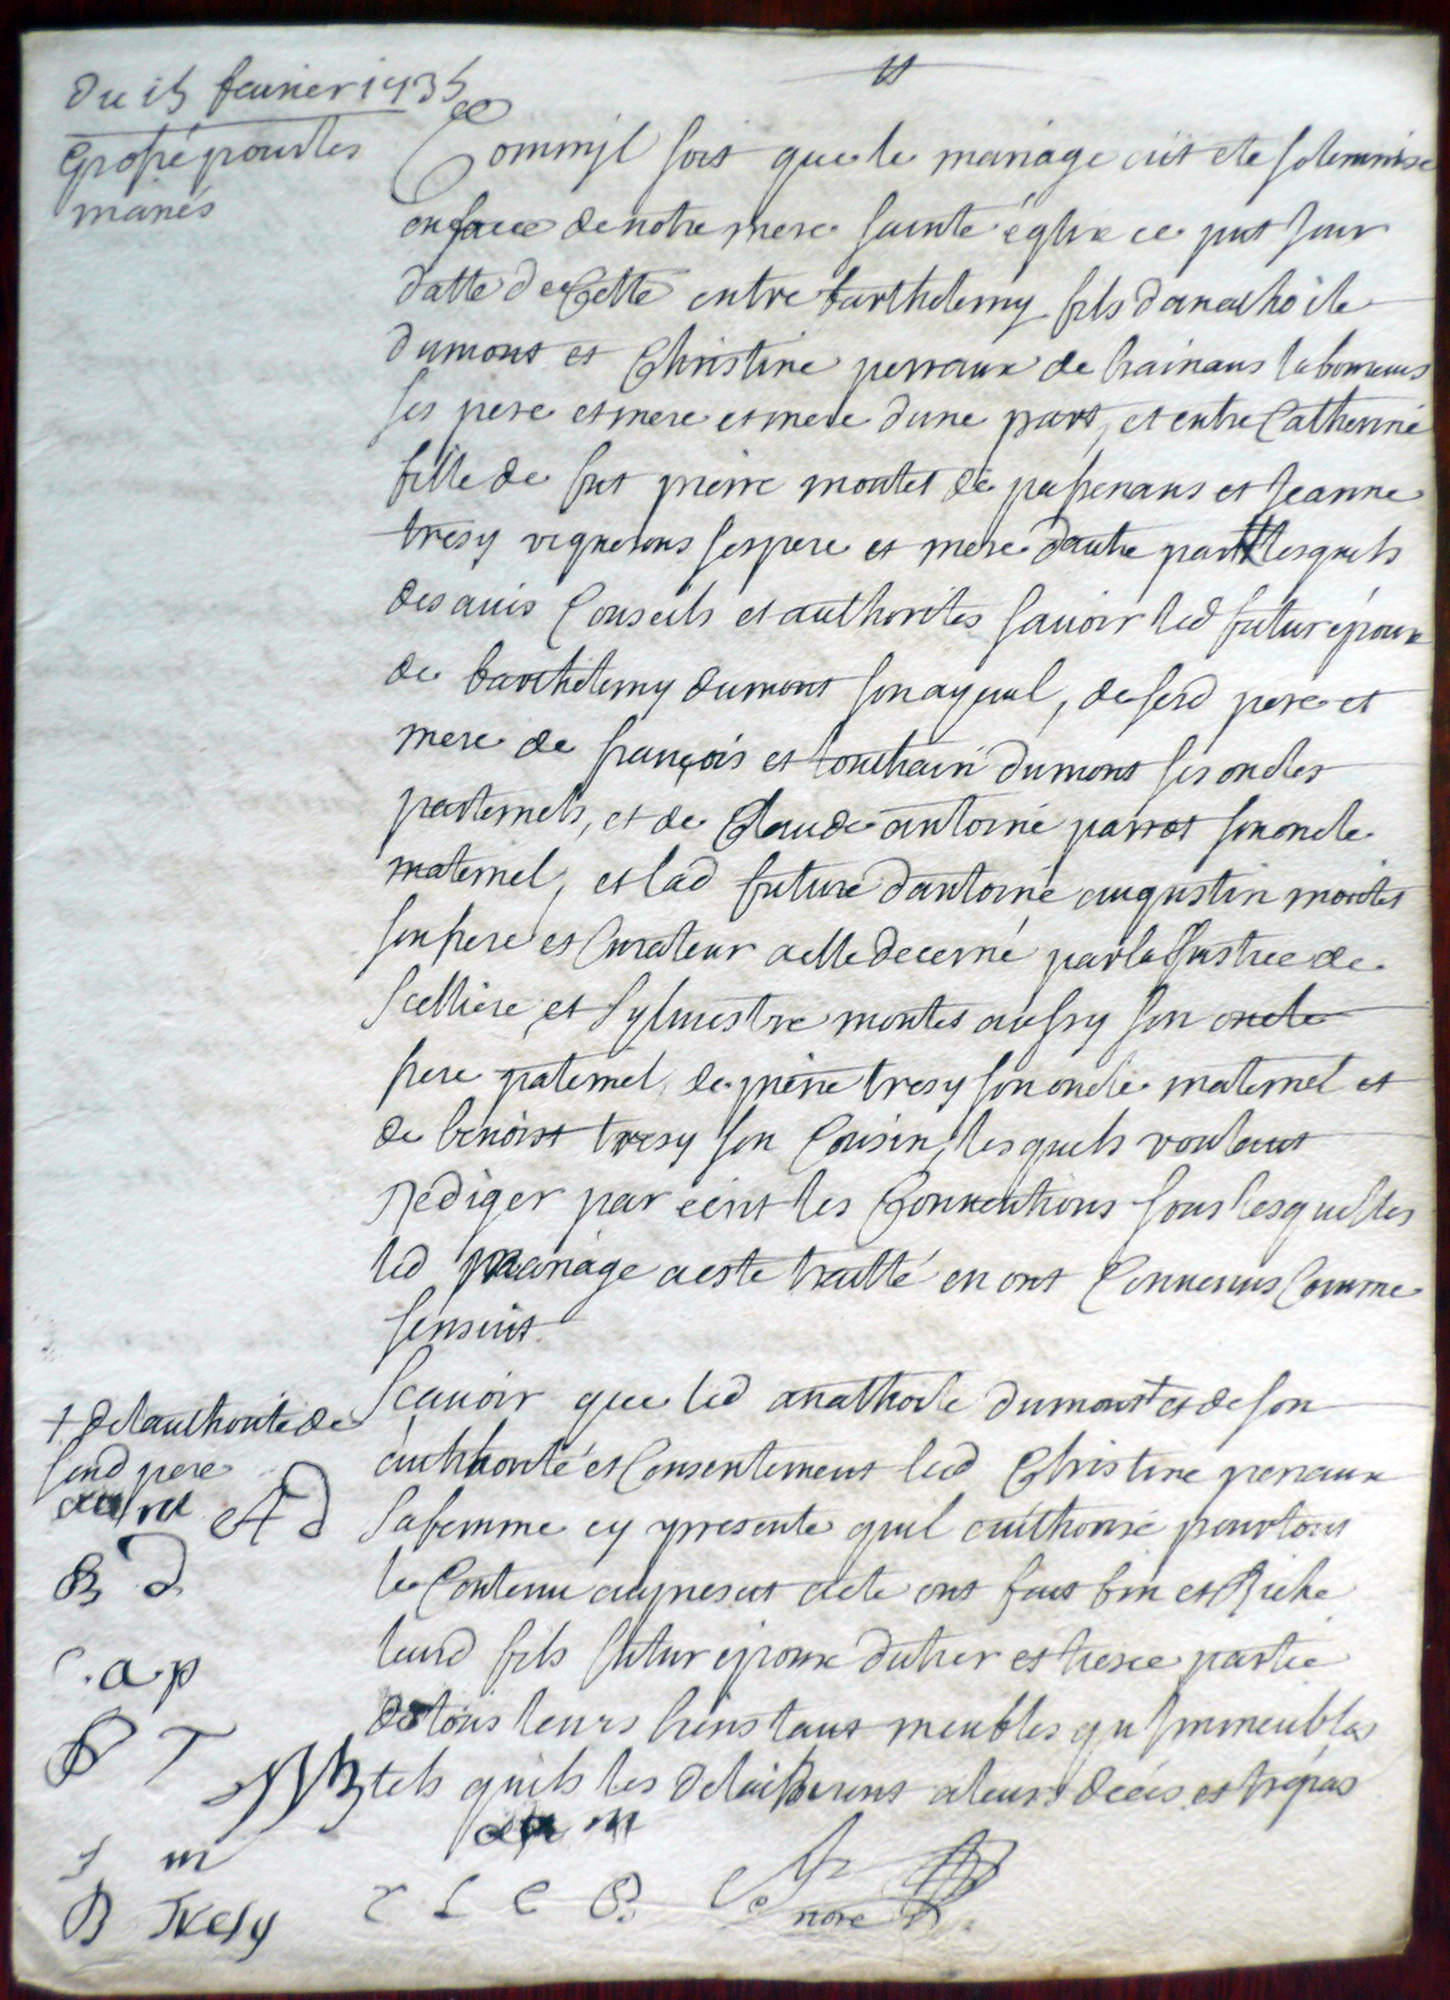 du 15 feurier 1735
Grossé pour les
mariés
Comm'jl soit que le mariage aüt ete solemnise
en face de notre mere sainte églize ce pnt jour
datte de Cette entre barthelemy fils d'anathoile
dumont et Christine perraux de hainans laboureurs
ses pere et mere et mere d'une part, et entre Catherine
fille de fut pierre montet de passenans et jeanne
tresy vignerons ses pere et mere d'autre part lesquels
des auis Conseils et authorités sauoir led futur époux
de barthelemy dumont son ayeul, de sesd pere et
mere de françois et touthain dumont ses oncles
paternels, et de Claude antoine parrot son oncle
maternel, et lad future d'antoine augustin montet
son frere et Curateur a elle decerné par la justice de
sellière, et Sylvestre montet aussy son oncle
frere paternel, de pierre tresy son oncle maternel et
de benoist tresy son Cousin, lesquels voulant
rediger par ecrit les Conuentions sous lesquelles
led mariage a este traitté en ont Conuenus Comme
sensuit
Scauoir que led anathoile dumont + et de son
authhorité et Consentement lad Christine perraux
sa femme cy presente qu'il authorise pour tout
le Contenu au present acte ont fait bon et Riche
leurd fils futur époux d'utier et tierce partie
de tous leurs biens tant meubles qu'jmmeubles
tels qu'ils les delaisseront a leurs décés et trépas
+ de l'authorité de
sond pere
A d
B D
C. a. p
P T
J m
B Tresy
m
C P
nore